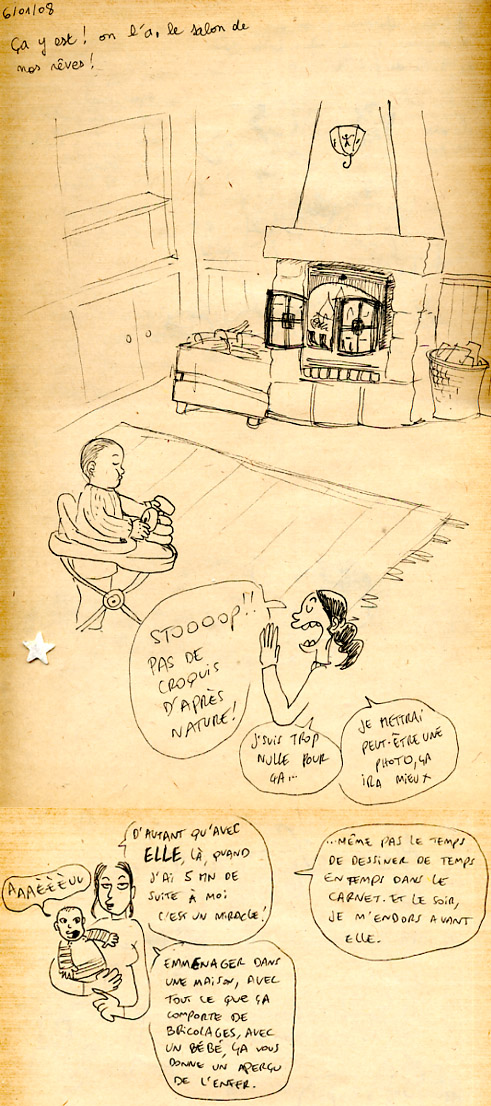 6/01/08
Ça y est! on l'a, le salon de
nos rêves!
STOOOOP!!
PAS DE
CROQUIS
D'APRÈS
NATURE!
J'SUIS TROP
NULLE POUR
ÇA...
JE METTRAI
PEUT-ÊTRE UNE
PHOTO, ÇA
IRA MIEUX
AAAÈÈÈUU
D'AUTANT QU'AVEC
ELLE, LÀ, QUAND
J'AI 5 MN DE
SUITE À MOI
C'EST UN MIRACLE!
...MÊME PAS LE TEMPS
DE DESSINER DE TEMPS
EN TEMPS DANS LE
CARNET. ET LE SOIR,
JE M'ENDORS AVANT
ELLE.
EMMENAGER DANS
UNE MAISON, AVEC
TOUT CE QUE ÇA
COMPORTE DE
BRICOLAGES, AVEC
UN BÉBÉ, ÇA VOUS
DONNE UN APERÇU
DE L'ENFER.